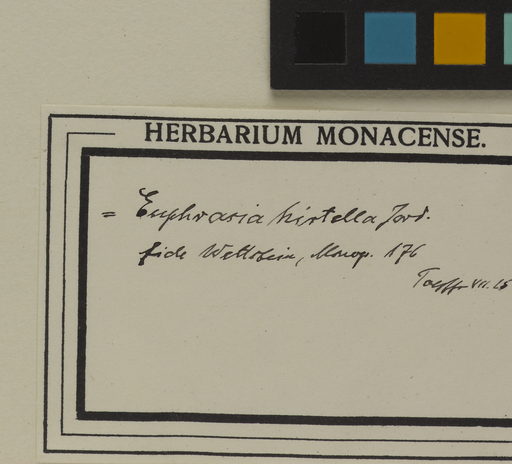 HERBARIUM MONACENSE.
= Euphrasia hirtella Jord.
fide Wettstein, Monogr. 176
VII. 25